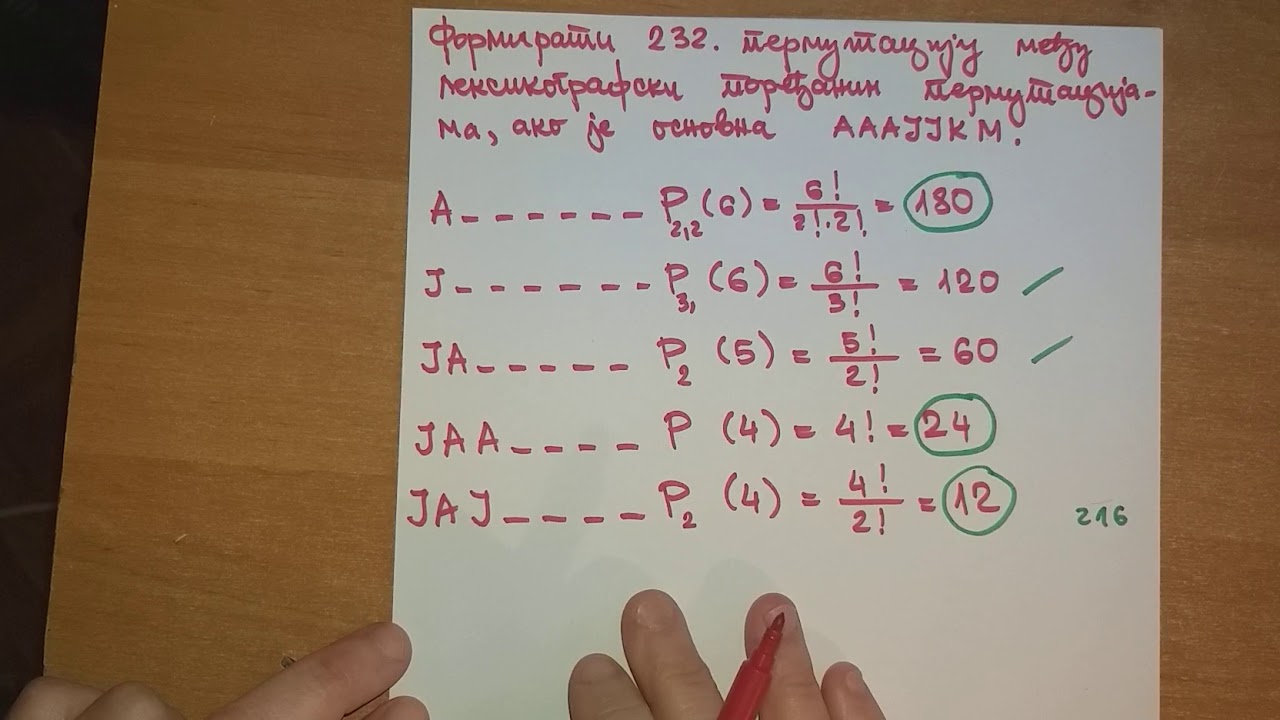 Формирати 232. пермутацију међу
лексикографски поређаним пермутација-
ма, ако је основна АААЈЈКМ.
А _ _ _ _ _ _ P2,2 (6) = 6!/2!·2! = 180
Ј _ _ _ _ _ _ P3, (6) = 6!/3! = 120
ЈА _ _ _ _ _ P2 (5) = 5!/2! = 60
ЈАА _ _ _ _ P (4) = 4! = 24
ЈАЈ _ _ _ _ P2 (4) = 4!/2! = 12
216